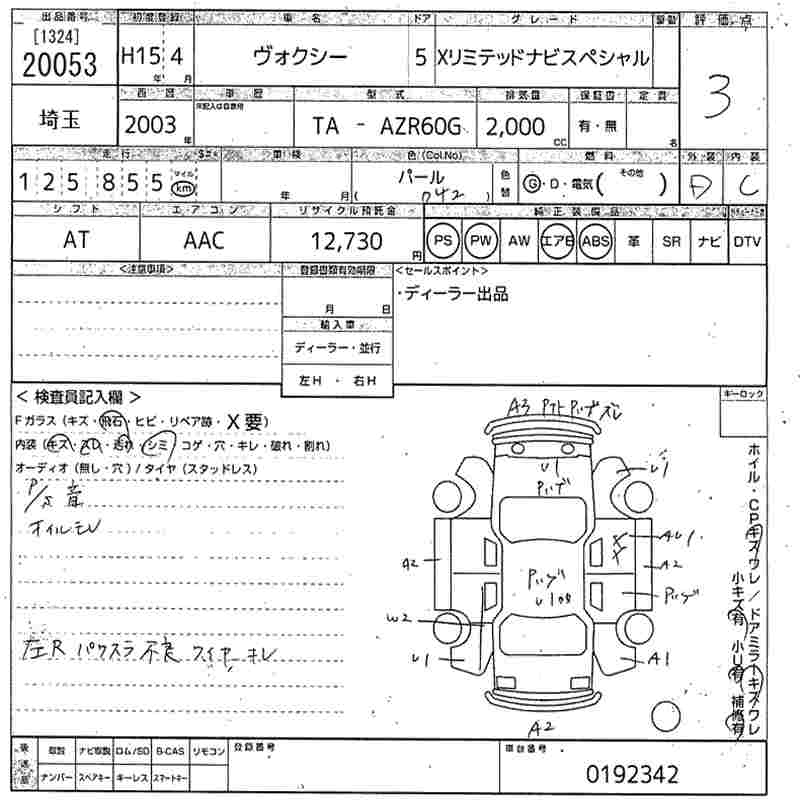 出品番号 初度登録 車名 ドア グレード 評価点
[1324]
20053 H15年 4月 ヴォクシー 5 Xリミテッドナビスペシャル 3
西暦 車歴 型式 排気量 保証書 定員
※記入は自家用
埼玉 2003年 TA - AZR60G 2,000cc 有・無 名
走行 車検 色(Col.No) 燃料 外装 内装
125855 マイル km 年 月 パール (042) 色替 G・D・電気(その他 ) D C
シフト エアコン リサイクル預託金 純正装備品
AT AAC 12,730円 PS PW AW エアB ABS 革 SR ナビ DTV
<注意事項> 登録書類有効期限 <セールスポイント>
・ディーラー出品
月 日
輸入車
ディーラー・並行
左H ・ 右H
< 検査員記入欄 > キーロック
Fガラス(キズ・飛石・ヒビ・リペア跡・X要)
内装(キズ・スレ・汚れ・シミ・コゲ・穴・キレ・破れ・割れ)
オーディオ(無し・穴)/タイヤ(スタッドレス)
P/S音
オイルモレ
左R パワスラ不良 ワイヤーキレ
A3
U1
U1
AU1
A2
A2
W2
U1
A1
A2
ホイル・CPキズワレ/ドアミラーキズワレ
小キズ有 小U有 補修有
後送品 取説 ナビ取説 ロム/SD B-CAS リモコン 登録番号 車台番号
ナンバー スペアキー キーレス スマートキー 0192342